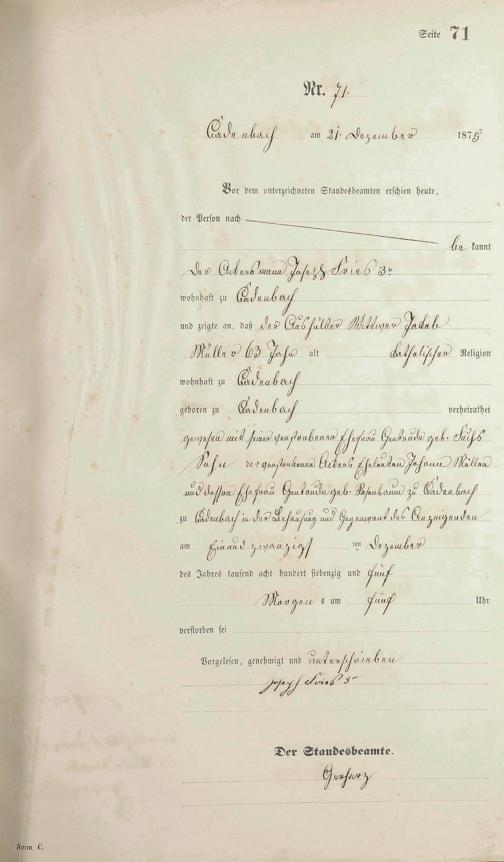 Seite 71
Nr. 71.
Cadenbach am 21 Dezember 1875
Vor dem unterzeichneten Standesbeamten erschien heute,
der Person nach
be kannt
der Ackersmann Joseph Fries 3r
wohnhaft zu Cadenbach
und zeigte an, daß der Aushälter Wittwer Jakob
Müller 63 Jahr alt katholischer Religion
wohnhaft zu Cadenbach
geboren zu Cadenbach verheirathet
gewesen mit seiner verstorbenen Ehefrau Gertrude geb. Fuchs
Sohn der verstorbenen Ackers Eheleuten Johann Müller
und dessen Ehefrau Gertrude geb. Rosenbaum zu Cadenbach
zu Cadenbach in der Behausung und Gegenwart des Anzeigenden
am Einund zwanzigs ten Dezember
des Jahres tausend acht hundert siebenzig und fünf
Morgens um fünf Uhr
verstorben sei
Vorgelesen, genehmigt und unterschrieben
Joseph Fries 3r
Der Standesbeamte.
Gerharz
Form C.